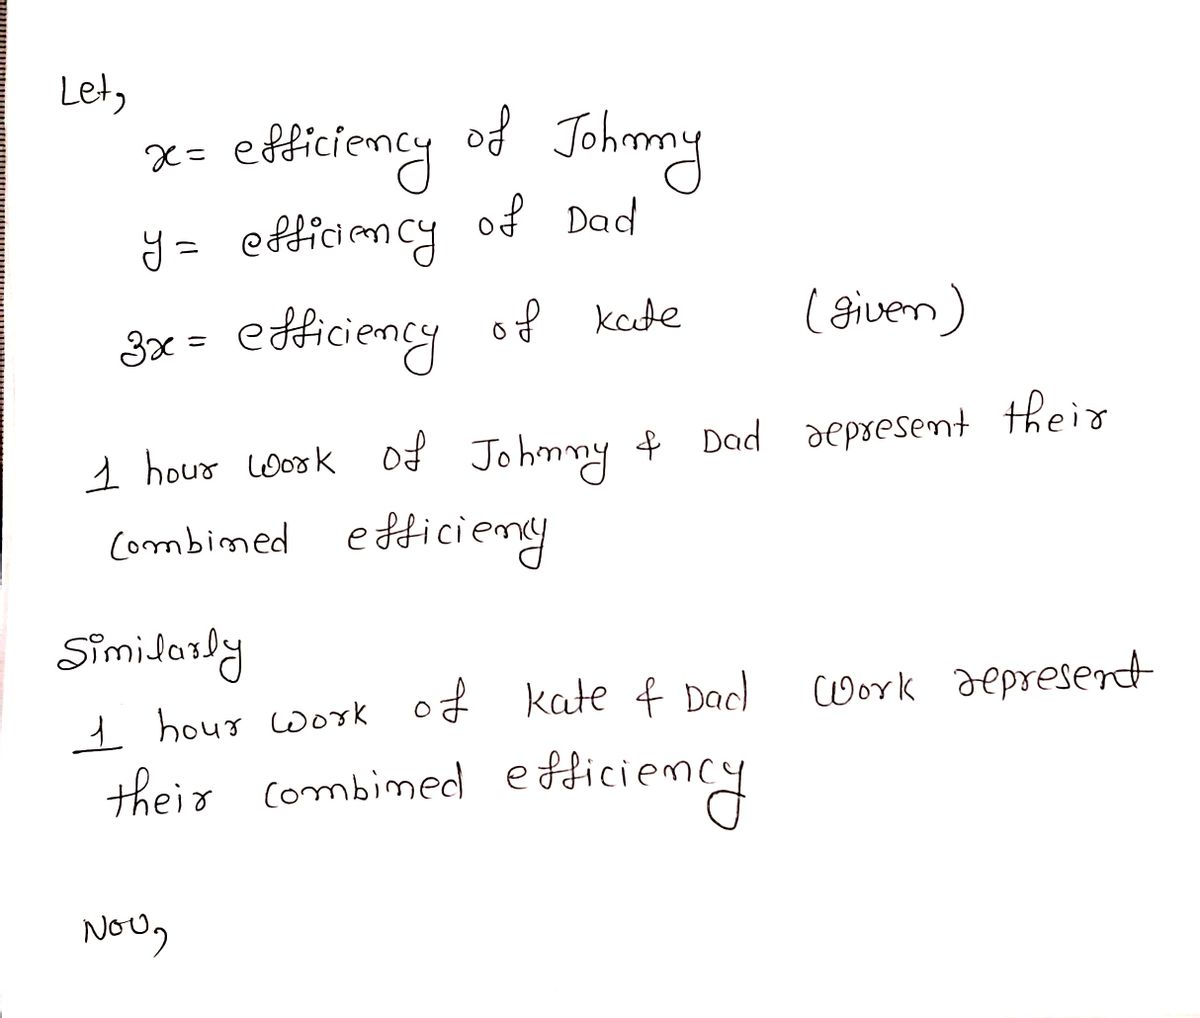 Let,
x = efficiency of Johnny
y = efficiency of Dad
3x = efficiency of kate (given)
1 hour work of Johnny & Dad represent their
combined efficiency
Similarly
1 hour work of kate & Dad work represent
their combined efficiency
Now,